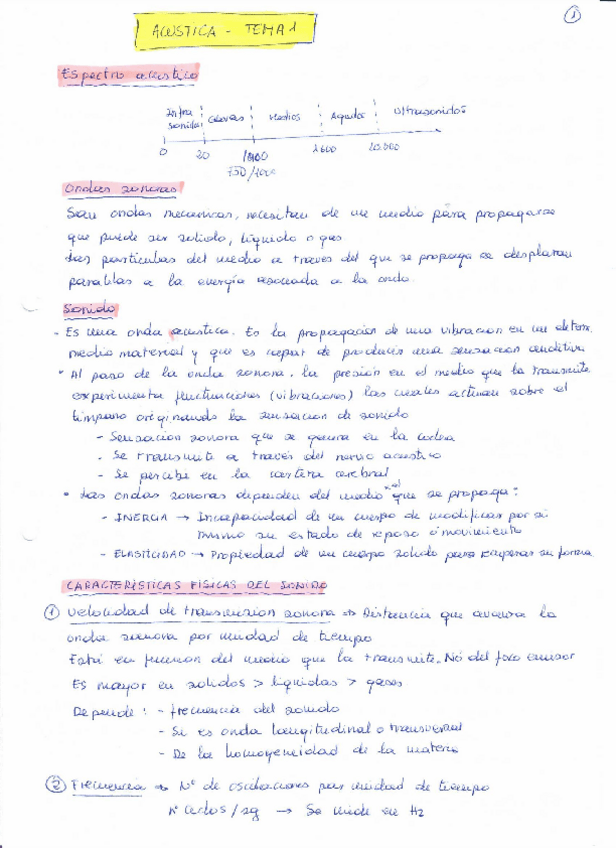 1
ACUSTICA - TEMA 1
Espectro acustico
Infra sonidos Graves Medios Agudos Ultrasonidos
0 20 1600 20.000
750/1000
Ondas sonoras
Son ondas mecanicas, necesitan de un medio para propagarse
que puede ser solido, liquido o gas
Las particulas del medio a traves del que se propaga se desplazan
paralelas a la energía asociada a la onda.
Sonido
- Es una onda acustica. Es la propagación de una vibracion en un determ.
medio material y que es capaz de producir una sensacion auditiva
• Al paso de la onda sonora, la presión en el medio que la transmite
experimenta fluctuaciones (vibraciones) las cuales actuan sobre el
timpano originando la sensacion de sonido
- Sensacion sonora que se genera en la coclea
- Se transmite a través del nervio acustico
- Se percibe en la corteza cerebral
• Las ondas sonoras dependen del medio en el que se propaga:
- INERCIA → Incapacidad de un cuerpo de modificar por si
mismo su estado de reposo o movimiento
- ELASTICIDAD → Propiedad de un cuerpo solido para recuperar su forma
CARACTERÍSTICAS FÍSICAS DEL SONIDO
1 Velocidad de transmision sonora → Distancia que avanza la
onda sonora por unidad de tiempo
Está en funcion del medio que la transmite. No del foco emisor
Es mayor en solidos > liquidos > gases
Depende: - frecuencia del sonido
- Si es onda longitudinal o transversal
- De la homogeneidad de la materia
2 Frecuencia → Nº de oscilaciones por unidad de tiempo
Nº ciclos/sg → Se mide en Hz